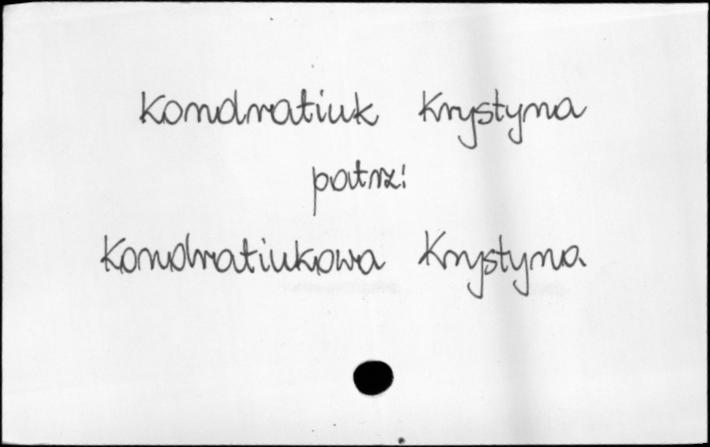 Kondratiuk Krystyna
patrz:
Kondratiukowa Krystyna